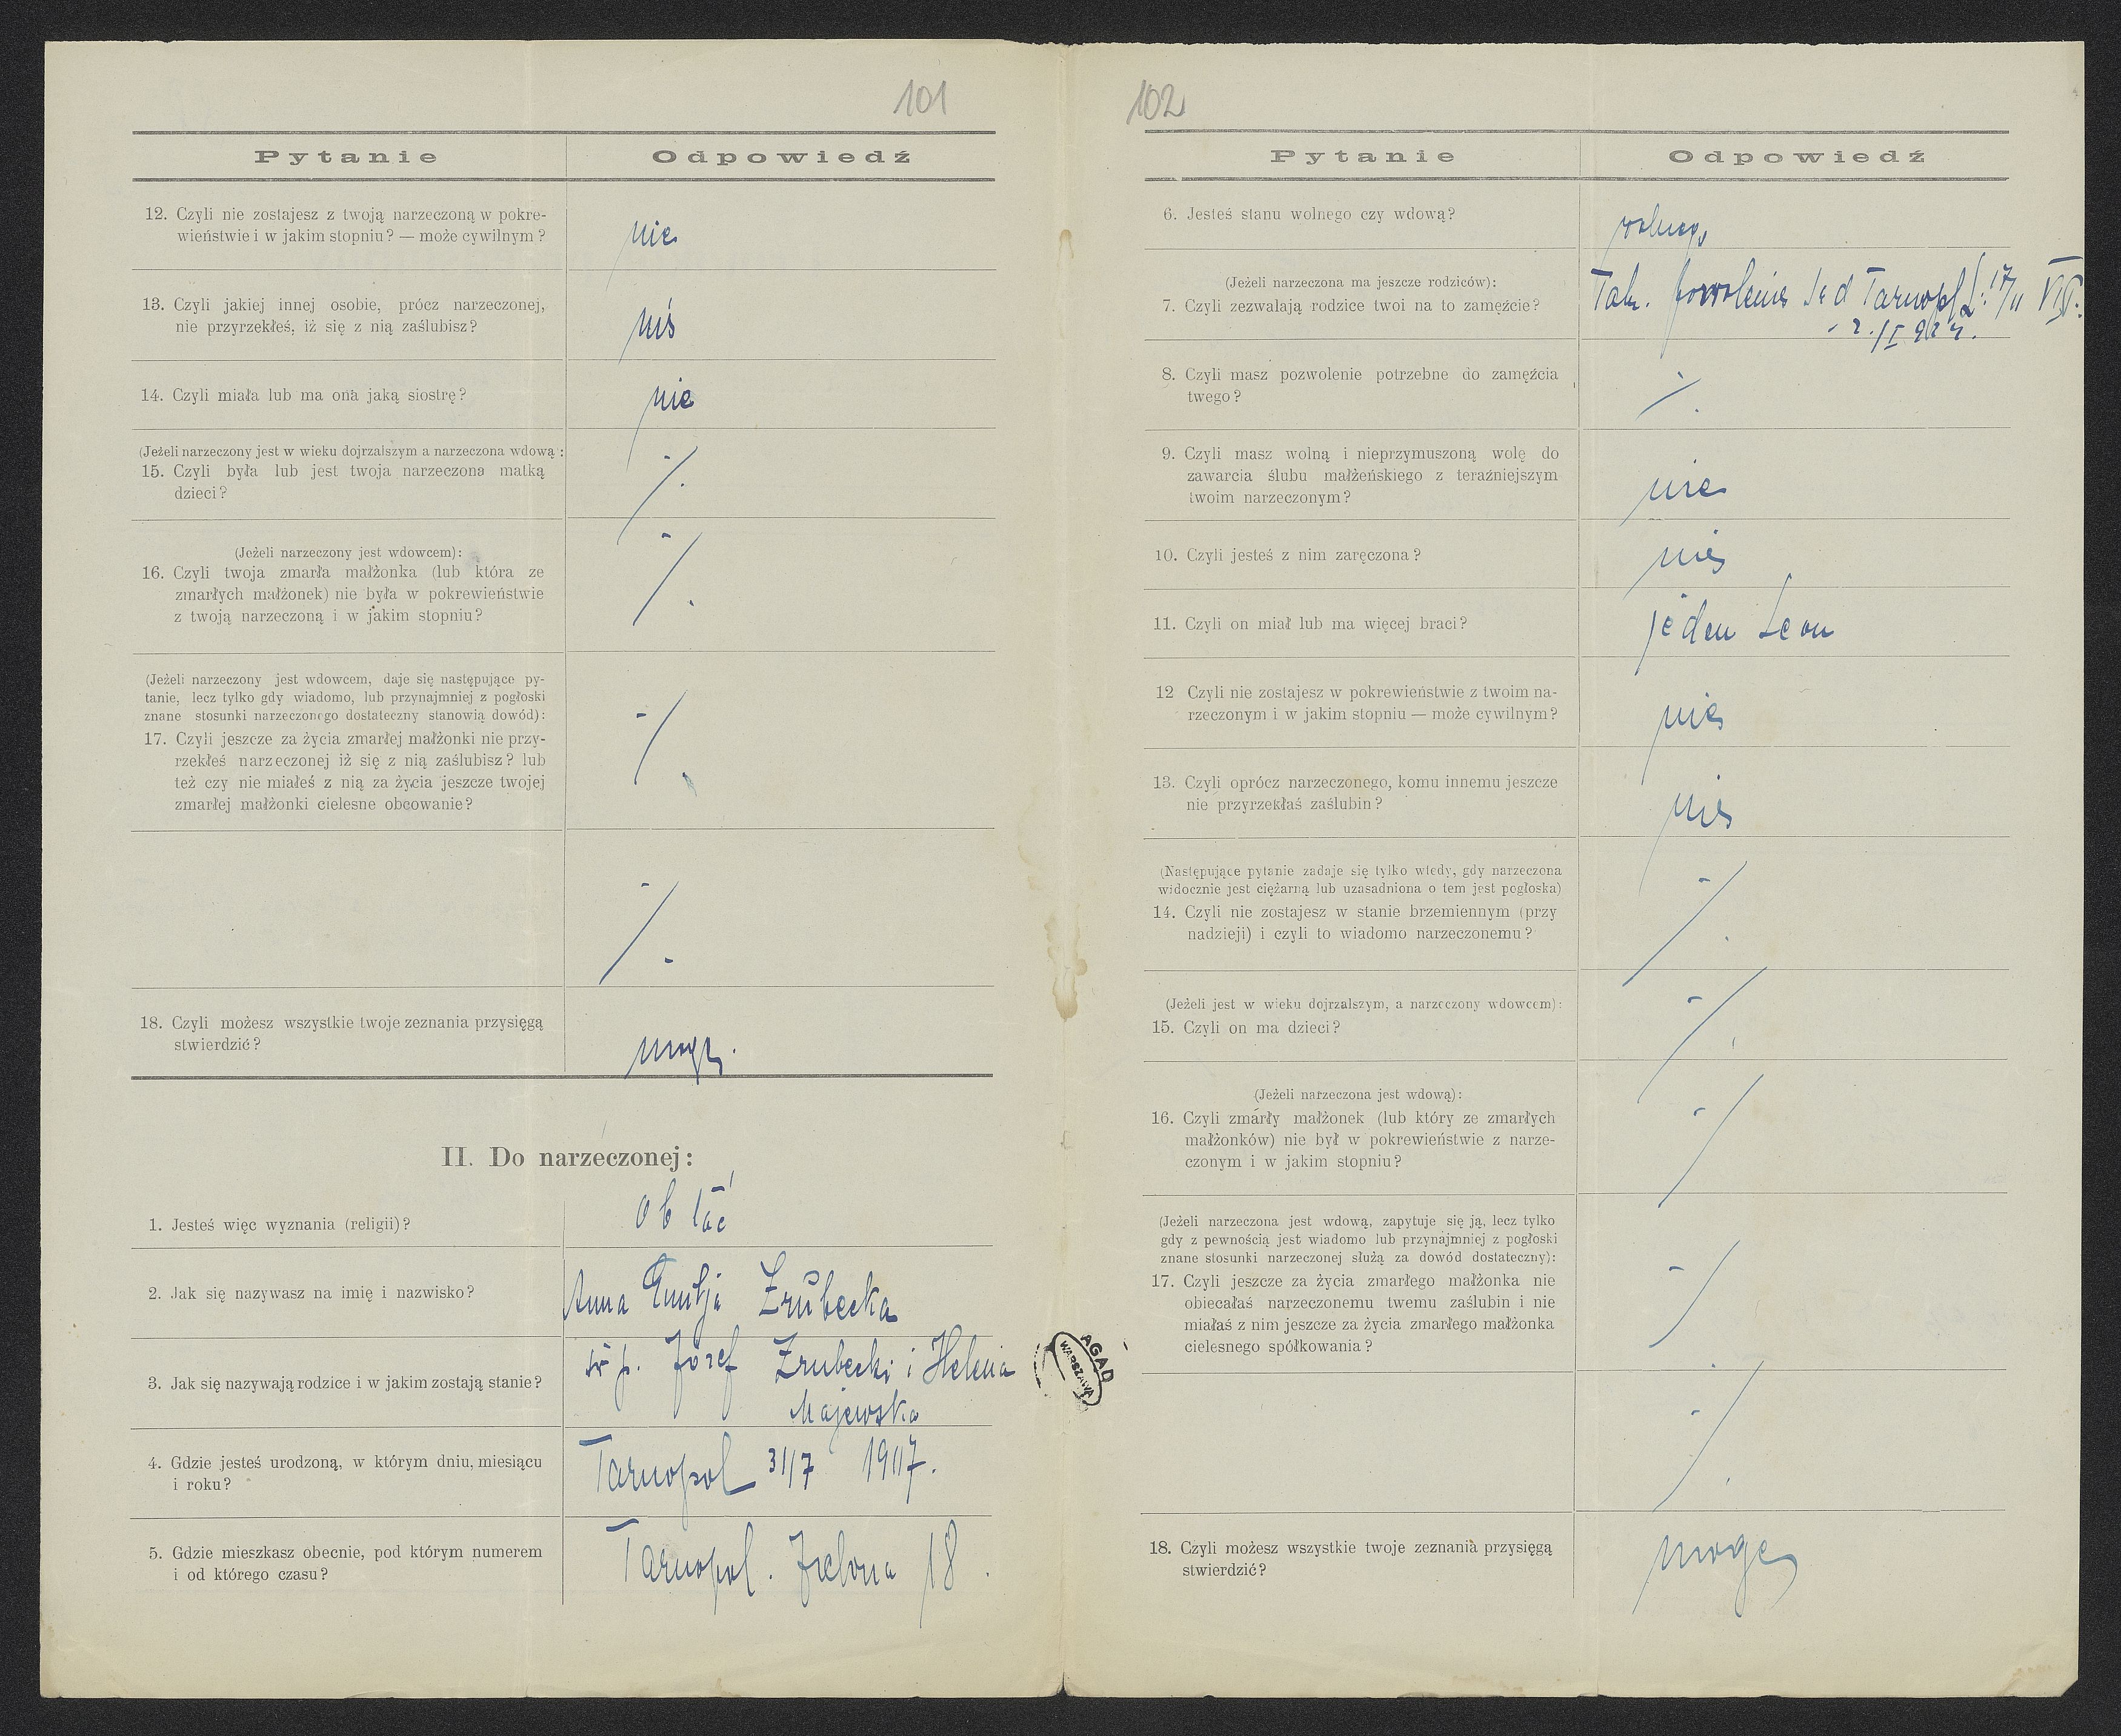 101
Pytanie Odpowiedź
12. Czyli nie zostajesz z twoją narzeczoną w pokre-
wieństwie i w jakim stopniu? — może cywilnym?
nie
13. Czyli jakiej innej osobie, prócz narzeczonej,
nie przyrzekłeś, iż się z nią zaślubisz?
nie
14. Czyli miała lub ma ona jaką siostrę?
nie
(Jeżeli narzeczony jest w wieku dojrzalszym a narzeczona wdową:
15. Czyli była lub jest twoja narzeczona matką
dzieci?
(Jeżeli narzeczony jest wdowcem):
16. Czyli twoja zmarła małżonka (lub która ze
zmarłych małżonek) nie była w pokrewieństwie
z twoją narzeczoną i w jakim stopniu?
(Jeżeli narzeczony jest wdowcem, daje się następujące py-
tanie, lecz tylko gdy wiadomo, lub przynajmniej z pogłoski
znane stosunki narzeczonego dostateczny stanowią dowód):
17. Czyli jeszcze za życia zmarłej małżonki nie przy-
rzekłeś narzeczonej iż się z nią zaślubisz? lub
też czy nie miałeś z nią za życia jeszcze twojej
zmarłej małżonki cielesne obcowanie?
18. Czyli możesz wszystkie twoje zeznania przysięgą
stwierdzić?
mogę.
II. Do narzeczonej:
1. Jesteś więc wyznania (religii)?
ob łać
2. Jak się nazywasz na imię i nazwisko?
Anna Emilja Zrubecka
3. Jak się nazywają rodzice i w jakim zostają stanie?
śp. Józef Zrubecki i Helena
Majewska
4. Gdzie jesteś urodzoną, w którym dniu, miesiącu
i roku?
Tarnopol 31/7 1917.
5. Gdzie mieszkasz obecnie, pod którym numerem
i od którego czasu?
Tarnopol. Zielona 18.
AGAD
WARSZAWA
102
Pytanie Odpowiedź
6. Jesteś stanu wolnego czy wdową?
wolnego
(Jeżeli narzeczona ma jeszcze rodziców):
7. Czyli zezwalają rodzice twoi na to zamęźcie?
Tak. pozwolenie Sąd Tarnopol
8. Czyli masz pozwolenie potrzebne do zamęźcia
twego?
9. Czyli masz wolną i nieprzymuszoną wolę do
zawarcia ślubu małżeńskiego z teraźniejszym
twoim narzeczonym?
nie
10. Czyli jesteś z nim zaręczona?
nie
11. Czyli on miał lub ma więcej braci?
jeden Leon
12 Czyli nie zostajesz w pokrewieństwie z twoim na-
rzeczonym i w jakim stopniu — może cywilnym?
nie
13. Czyli oprócz narzeczonego, komu innemu jeszcze
nie przyrzekłaś zaślubin?
nie
(Następujące pytanie zadaje się tylko wtedy, gdy narzeczona
widocznie jest ciężarną lub uzasadniona o tem jest pogłoska)
14. Czyli nie zostajesz w stanie brzemiennym (przy
nadzieji) i czyli to wiadomo narzeczonemu?
(Jeżeli jest w wieku dojrzalszym, a narzeczony wdowcem):
15. Czyli on ma dzieci?
(Jeżeli narzeczona jest wdową):
16. Czyli zmarły małżonek (lub który ze zmarłych
małżonków) nie był w pokrewieństwie z narze-
czonym i w jakim stopniu?
(Jeżeli narzeczona jest wdową, zapytuje się ją, lecz tylko
gdy z pewnością jest wiadomo lub przynajmniej z pogłoski
znane stosunki narzeczonej służą za dowód dostateczny):
17. Czyli jeszcze za życia zmarłego małżonka nie
obiecałaś narzeczonemu twemu zaślubin i nie
miałaś z nim jeszcze za życia zmarłego małżonka
cielesnego spółkowania?
18. Czyli możesz wszystkie twoje zeznania przysięgą
stwierdzić?
mogę